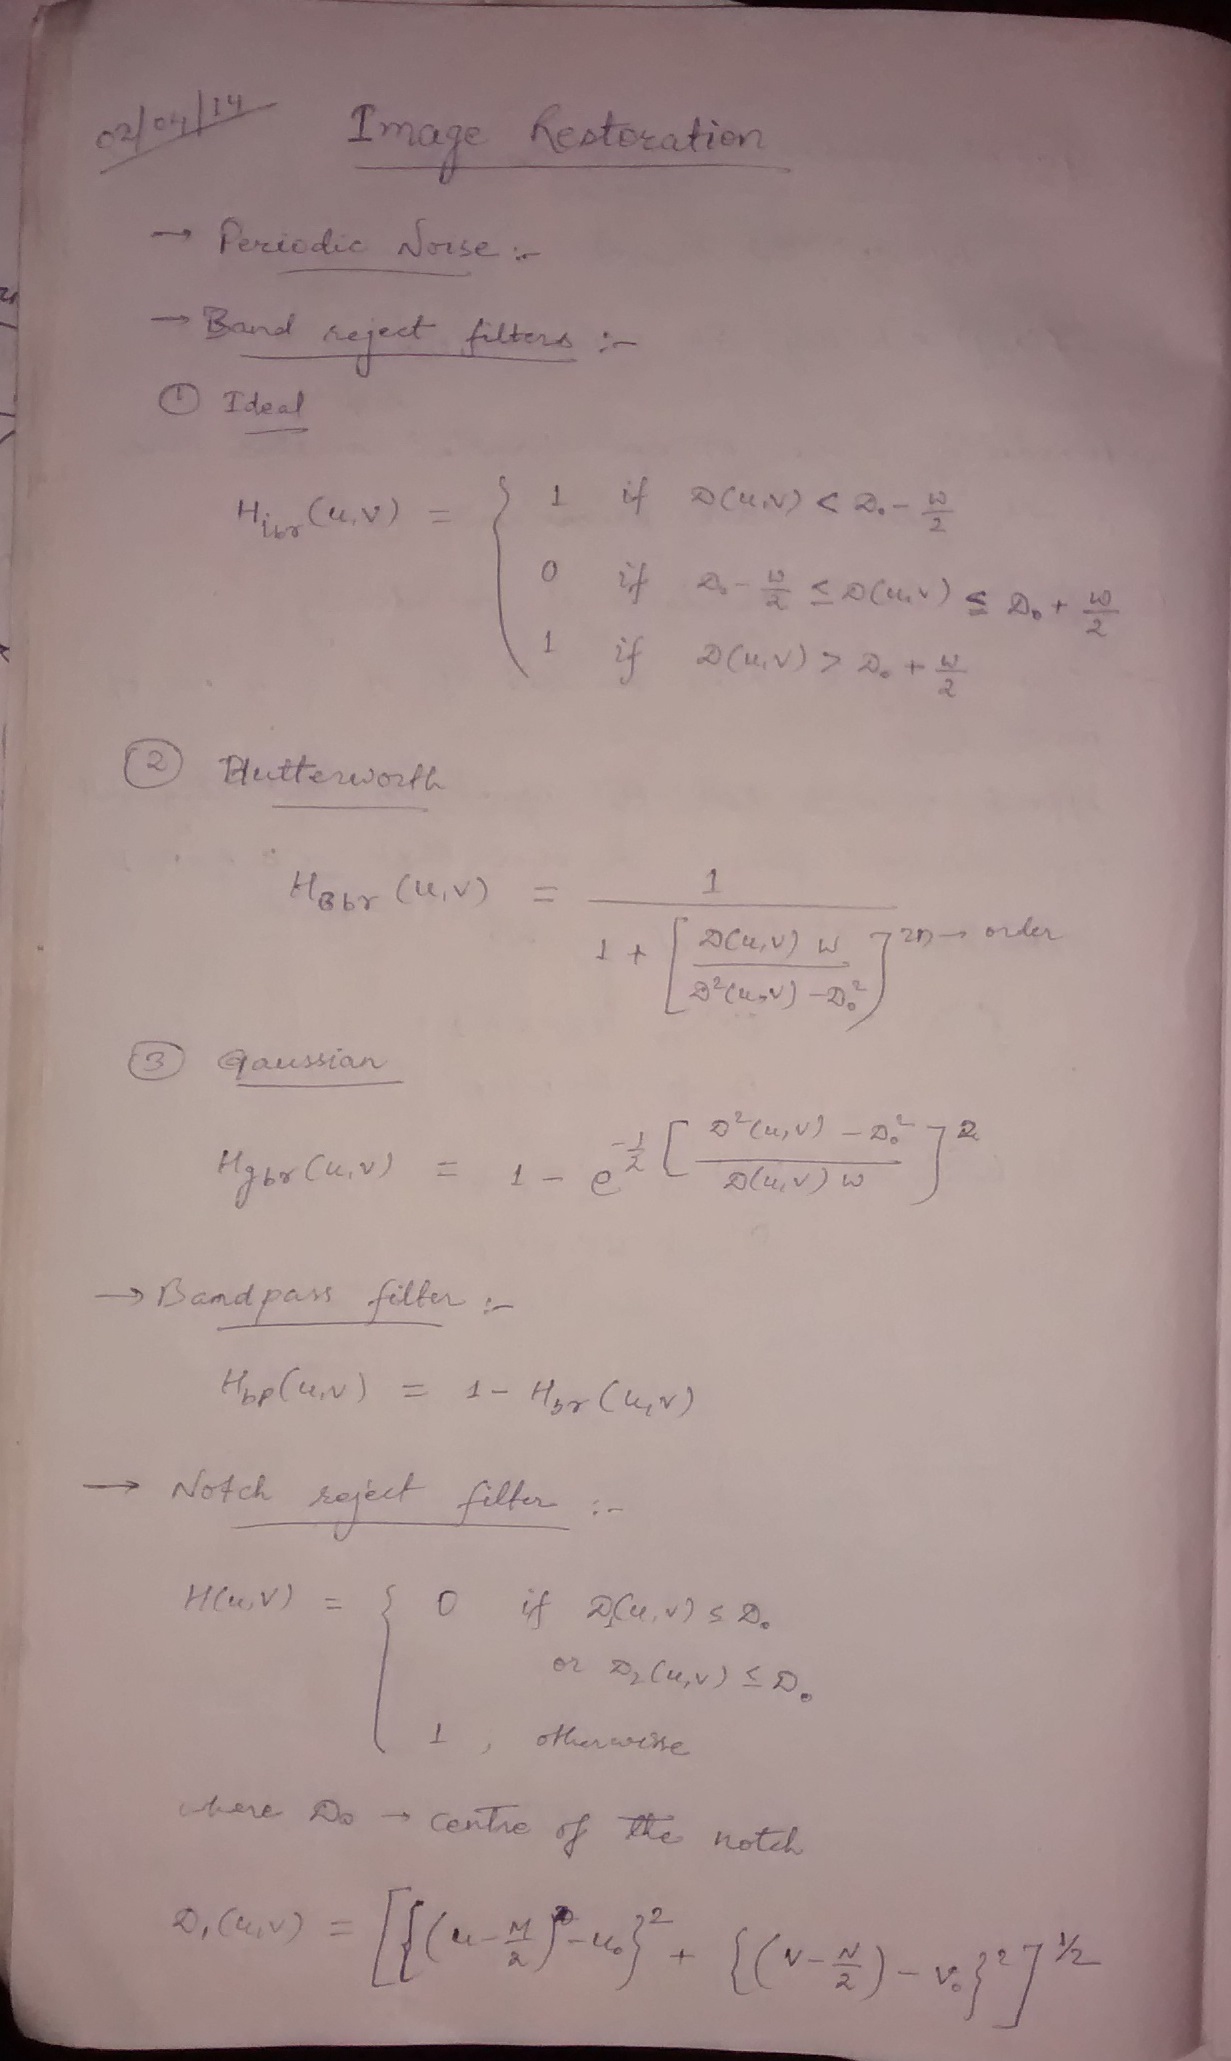 02/04/14 Image Restoration
→ Periodic Noise :-
→ Band reject filters :-
① Ideal
H_ibr(u,v) = { 1 if D(u,v) < D₀ - W/2
0 if D₀ - W/2 ≤ D(u,v) ≤ D₀ + W/2
1 if D(u,v) > D₀ + W/2
② Butterworth
H_Bbr(u,v) = 1 / (1 + [D(u,v) W / (D²(u,v) - D₀²)]^2n) → order
③ Gaussian
H_gbr(u,v) = 1 - e^(-1/2 [(D²(u,v) - D₀²) / (D(u,v) W)]²)
→ Bandpass filter :-
H_bp(u,v) = 1 - H_br(u,v)
→ Notch reject filter :-
H(u,v) = { 0 if D₁(u,v) ≤ D₀
or D₂(u,v) ≤ D₀
1 , otherwise
where D₀ → centre of the notch
D₁(u,v) = [{(u - M/2) - u₀}² + {(v - N/2) - v₀}²]^1/2